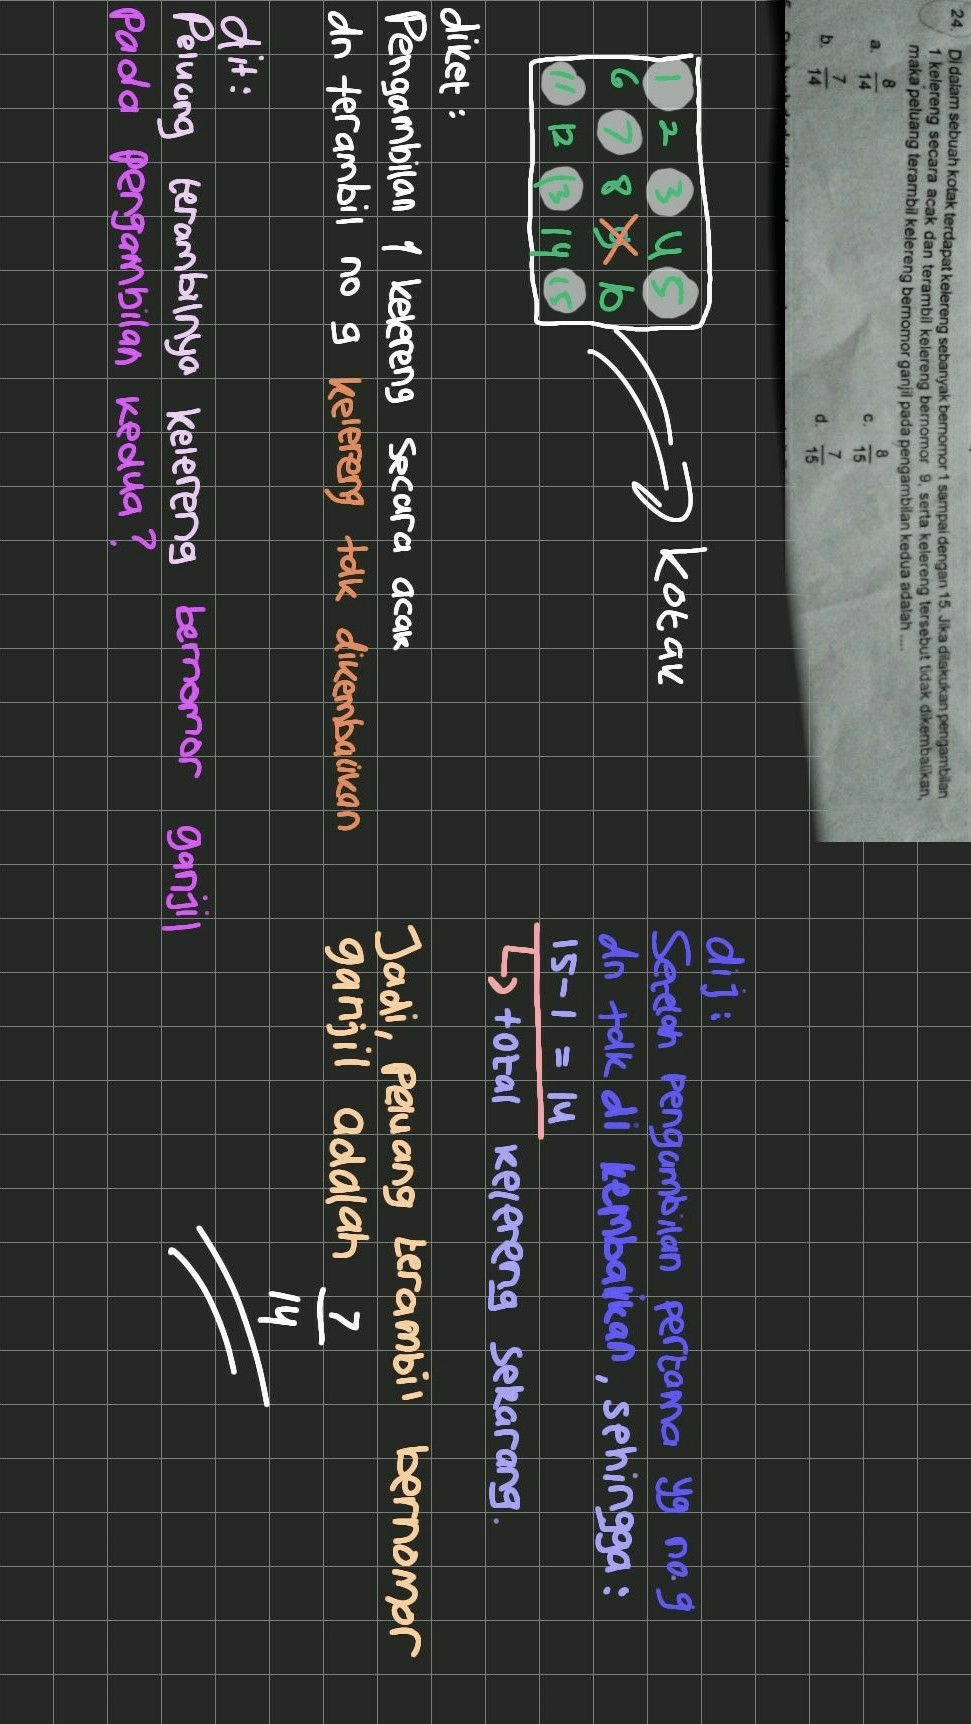 24. Di dalam sebuah kotak terdapat kelereng sebanyak bernomor 1 sampai dengan 15. Jika dilakukan pengambilan
1 kelereng secara acak dan terambil kelereng bernomor 9, serta kelereng tersebut tidak dikembalikan,
maka peluang terambil kelereng bernomor ganjil pada pengambilan kedua adalah ....
a. 8/14 c. 8/15
b. 7/14 d. 7/15
1 2 3 4 5
6 7 8 9 10
11 12 13 14 15
Kotak
diket :
Pengambilan 1 kelereng secara acak
dn terambil no 9 kelereng tdk dikembalikan
dit :
Peluang terambilnya kelereng bernomor ganjil
pada pengambilan kedua ?
dij :
Setelah pengambilan pertama yg no.9
dn tdk di kembalikan, sehingga :
15-1 = 14
total kelereng sekarang.
Jadi, peluang terambil bernomor
ganjil adalah 7/14